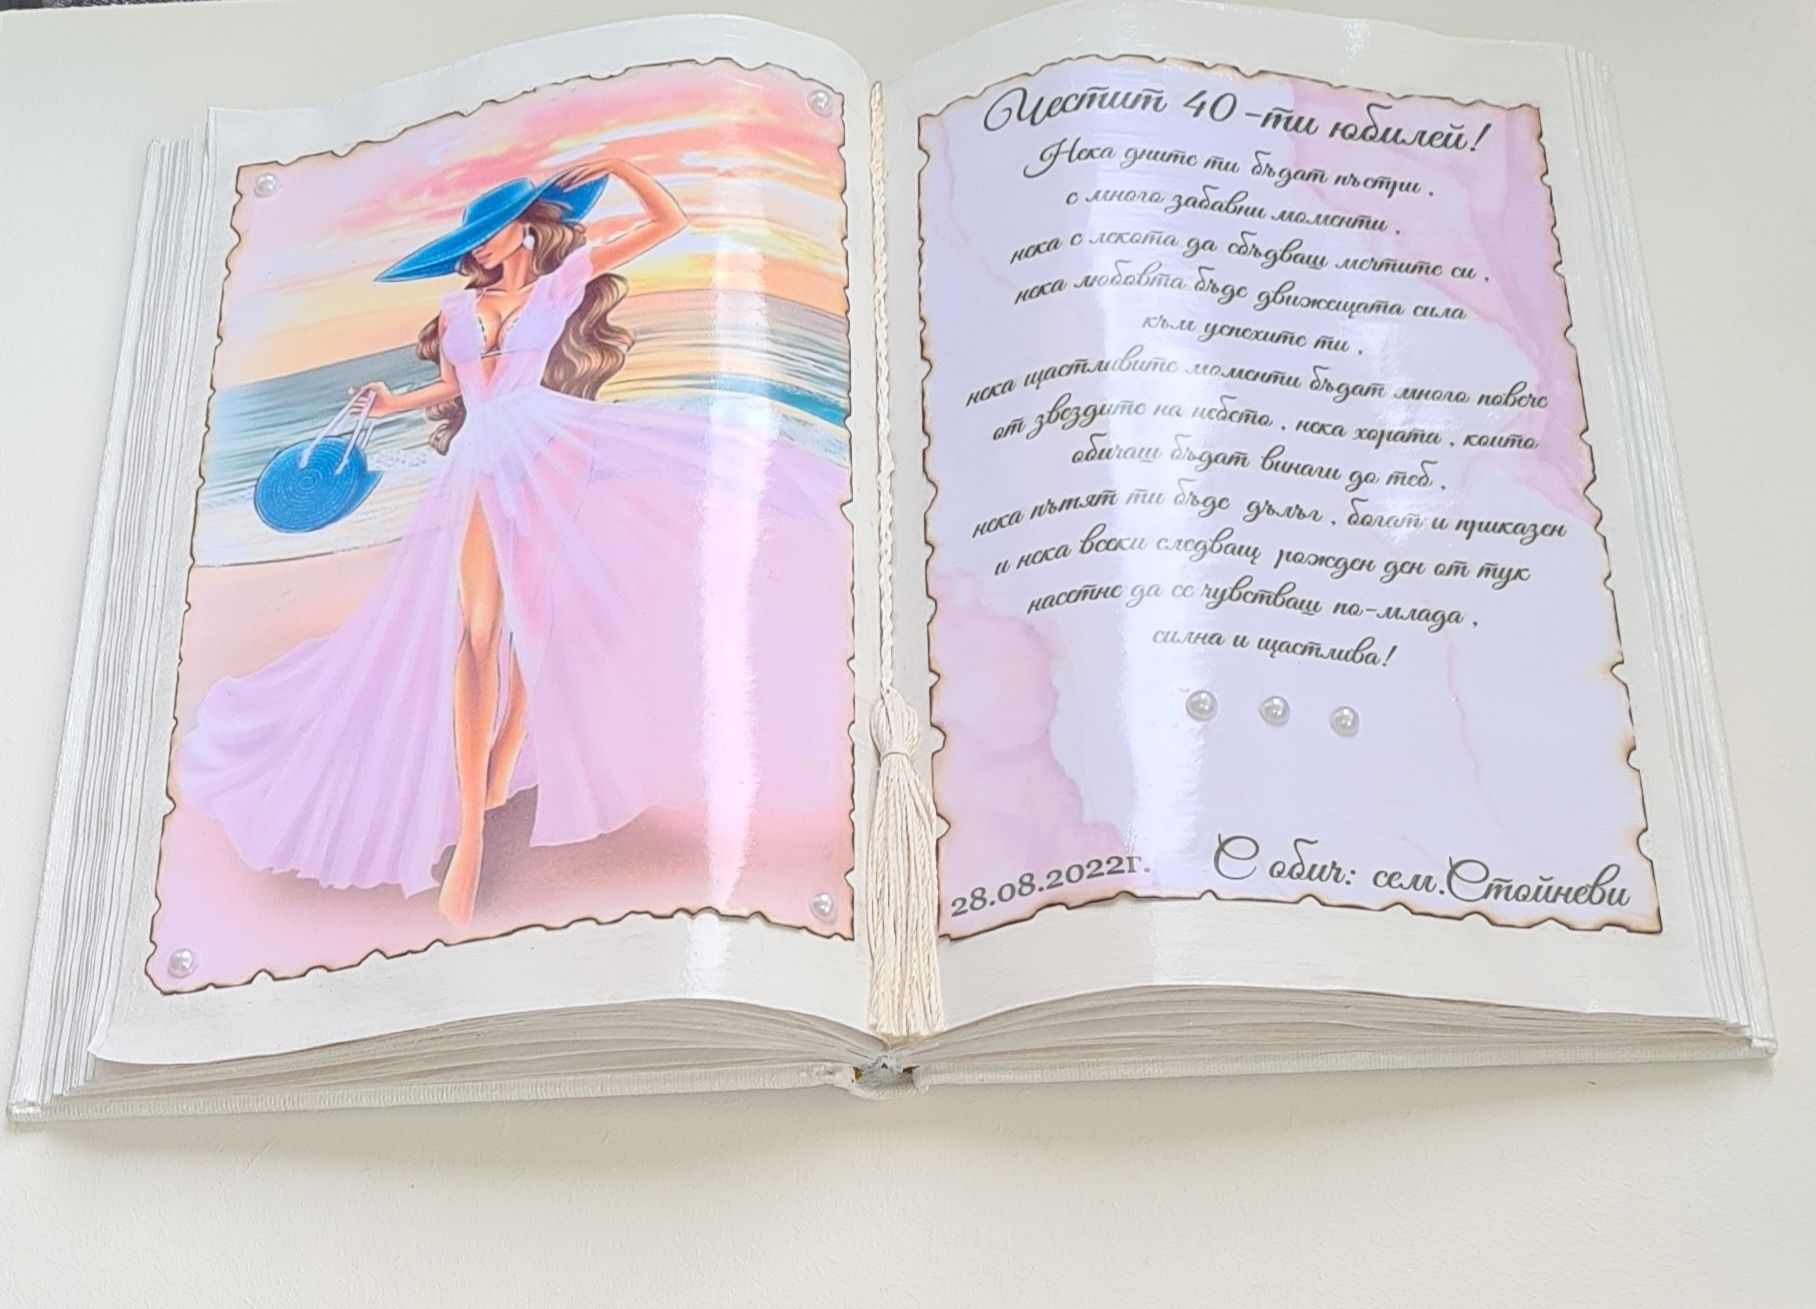 Честит 40 -ти юбилей!
Нека дните ти бъдат пъстри ,
с много забавни моменти ,
нека с лекота да сбъдваш мечтите си ,
нека любовта бъде движещата сила
към успехите ти ,
нека щастливите моменти бъдат много повече
от звездите на небето , нека хората , които
обичаш бъдат винаги до теб ,
нека пътят ти бъде дълъг , богат и приказен
и нека всеки следващ рожден ден от тук
насетне да се чувстваш по-млада ,
силна и щастлива!
28.08.2022г.
С обич: сем.Стойневи